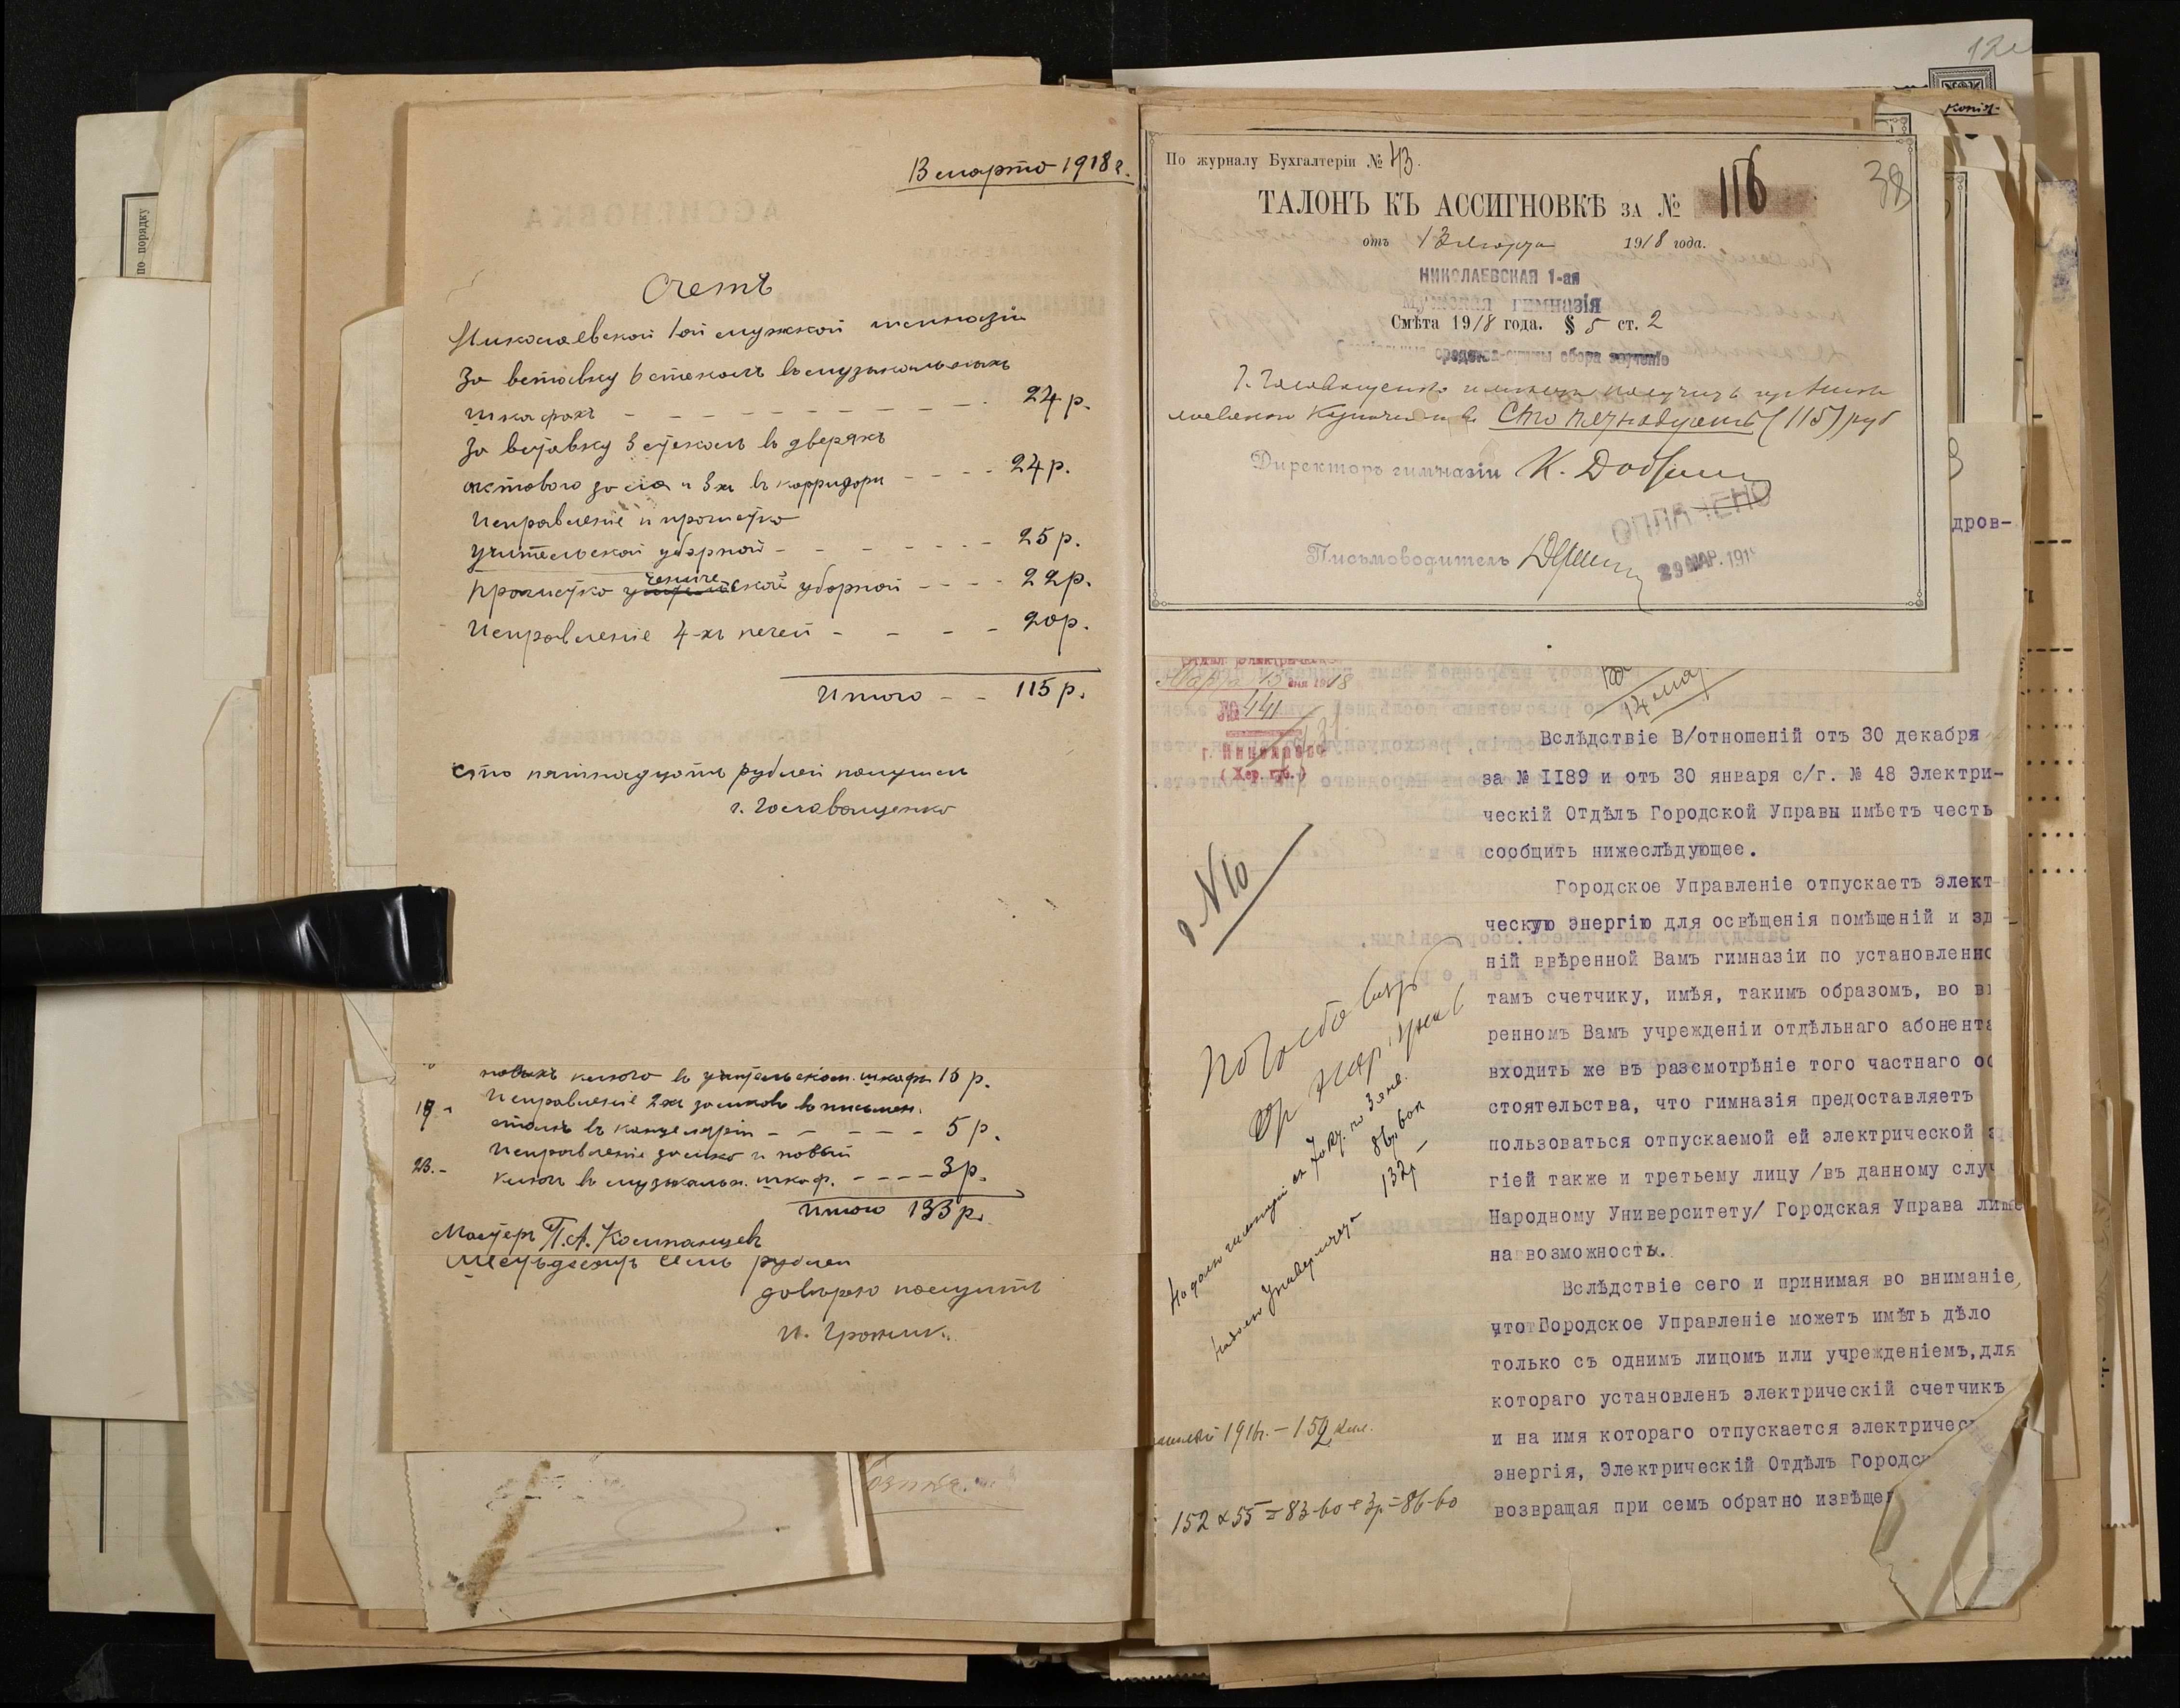 13 марта 1918 г.
Счетъ
Николаевской 1ой мужской гимназіи
За вставку 6 стеколъ въ музыкальныхъ
шкафахъ - - - 24 р.
За вставку 3 стеколъ въ дверяхъ
актового зала и 3хъ въ корридори - - - 24 р.
Исправленіе и прочистка
учительской уборной - - - 25 р.
Прочистка учениче ской уборной - - - 22 р.
Исправленіе 4-хъ печей - - - 20 р.
Итого - - 115 р.
сто пятнадцать рублей получилъ
г. Головащенко
ключа въ учительском. шкафъ 15 р.
19 - Исправленіе 2хъ замковъ въ письмен.
столъ въ канцеляріи - - - 5 р.
23. - Исправленіе замка и новый
ключъ въ музыкальн. шкаф. - - - 3 р.
Итого 133 р.
Мастеръ П. А.
Шестьдесятъ семь рублей
довѣряю получить
по порядку
120
копія
По журналу Бухгалтеріи № 43.
38
ТАЛОНЪ КЪ АССИГНОВКѢ ЗА № 116
отъ 13 марта 1918 года.
НИКОЛАЕВСКАЯ 1-ая
МУЖСКАЯ ГИМНАЗІЯ
Смѣта 1918 года. § 5 ст. 2
Спеціальныя средства-суммы сбора за ученіе
Г. Головащенко имѣетъ получить изъ Нико
лаевскаго Казначейства Сто пятнадцать (115) руб
Директоръ гимназіи К.
ОПЛАЧЕНО
Письмоводитель
29 МАР. 191
дров-
Отдѣл Электрическ
Марта 13 дня 1918
№ 441
г. Николаевъ
(Хер. губ.)
14 мар
Вслѣдствіе В/отношеній отъ 30 декабря
за № II89 и отъ 30 января с/г. № 48 Электри-
ческій Отдѣлъ Городской Управы имѣетъ честь
сообщить нижеслѣдующее.
Городское Управленіе отпускаетъ элект-
ческую энергію для освѣщенія помѣщеній и зд
ній ввѣренной Вамъ гимназіи по установленно
тамъ счетчику, имѣя, такимъ образомъ, во вв
ренномъ Вамъ учрежденіи отдѣльнаго абонента
входить же въ разсмотрѣніе того частнаго об
стоятельства, что гимназія предоставляетъ
пользоваться отпускаемой ей электрической э
гіей также и третьему лицу /въ данному случ
Народному Университету/ Городская Управа лише
на возможность.
Вслѣдствіе сего и принимая во вниманіе,
что Городское Управленіе можетъ имѣть дѣло
только съ однимъ лицомъ или учрежденіемъ, для
котораго установленъ электрическій счетчикъ
и на имя котораго отпускается электричес
энергія, Электрическій Отдѣлъ Городск
возвращая при семъ обратно извѣще
№ 10
86р 60к
132р
1916г. - 152 кил.
152 x 55 = 83-60 + 3р = 86-60